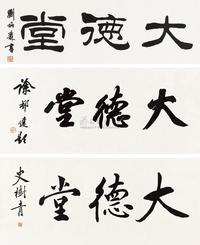 大德堂
劉炳森書
大德堂
徐邦達題
大德堂
史樹青